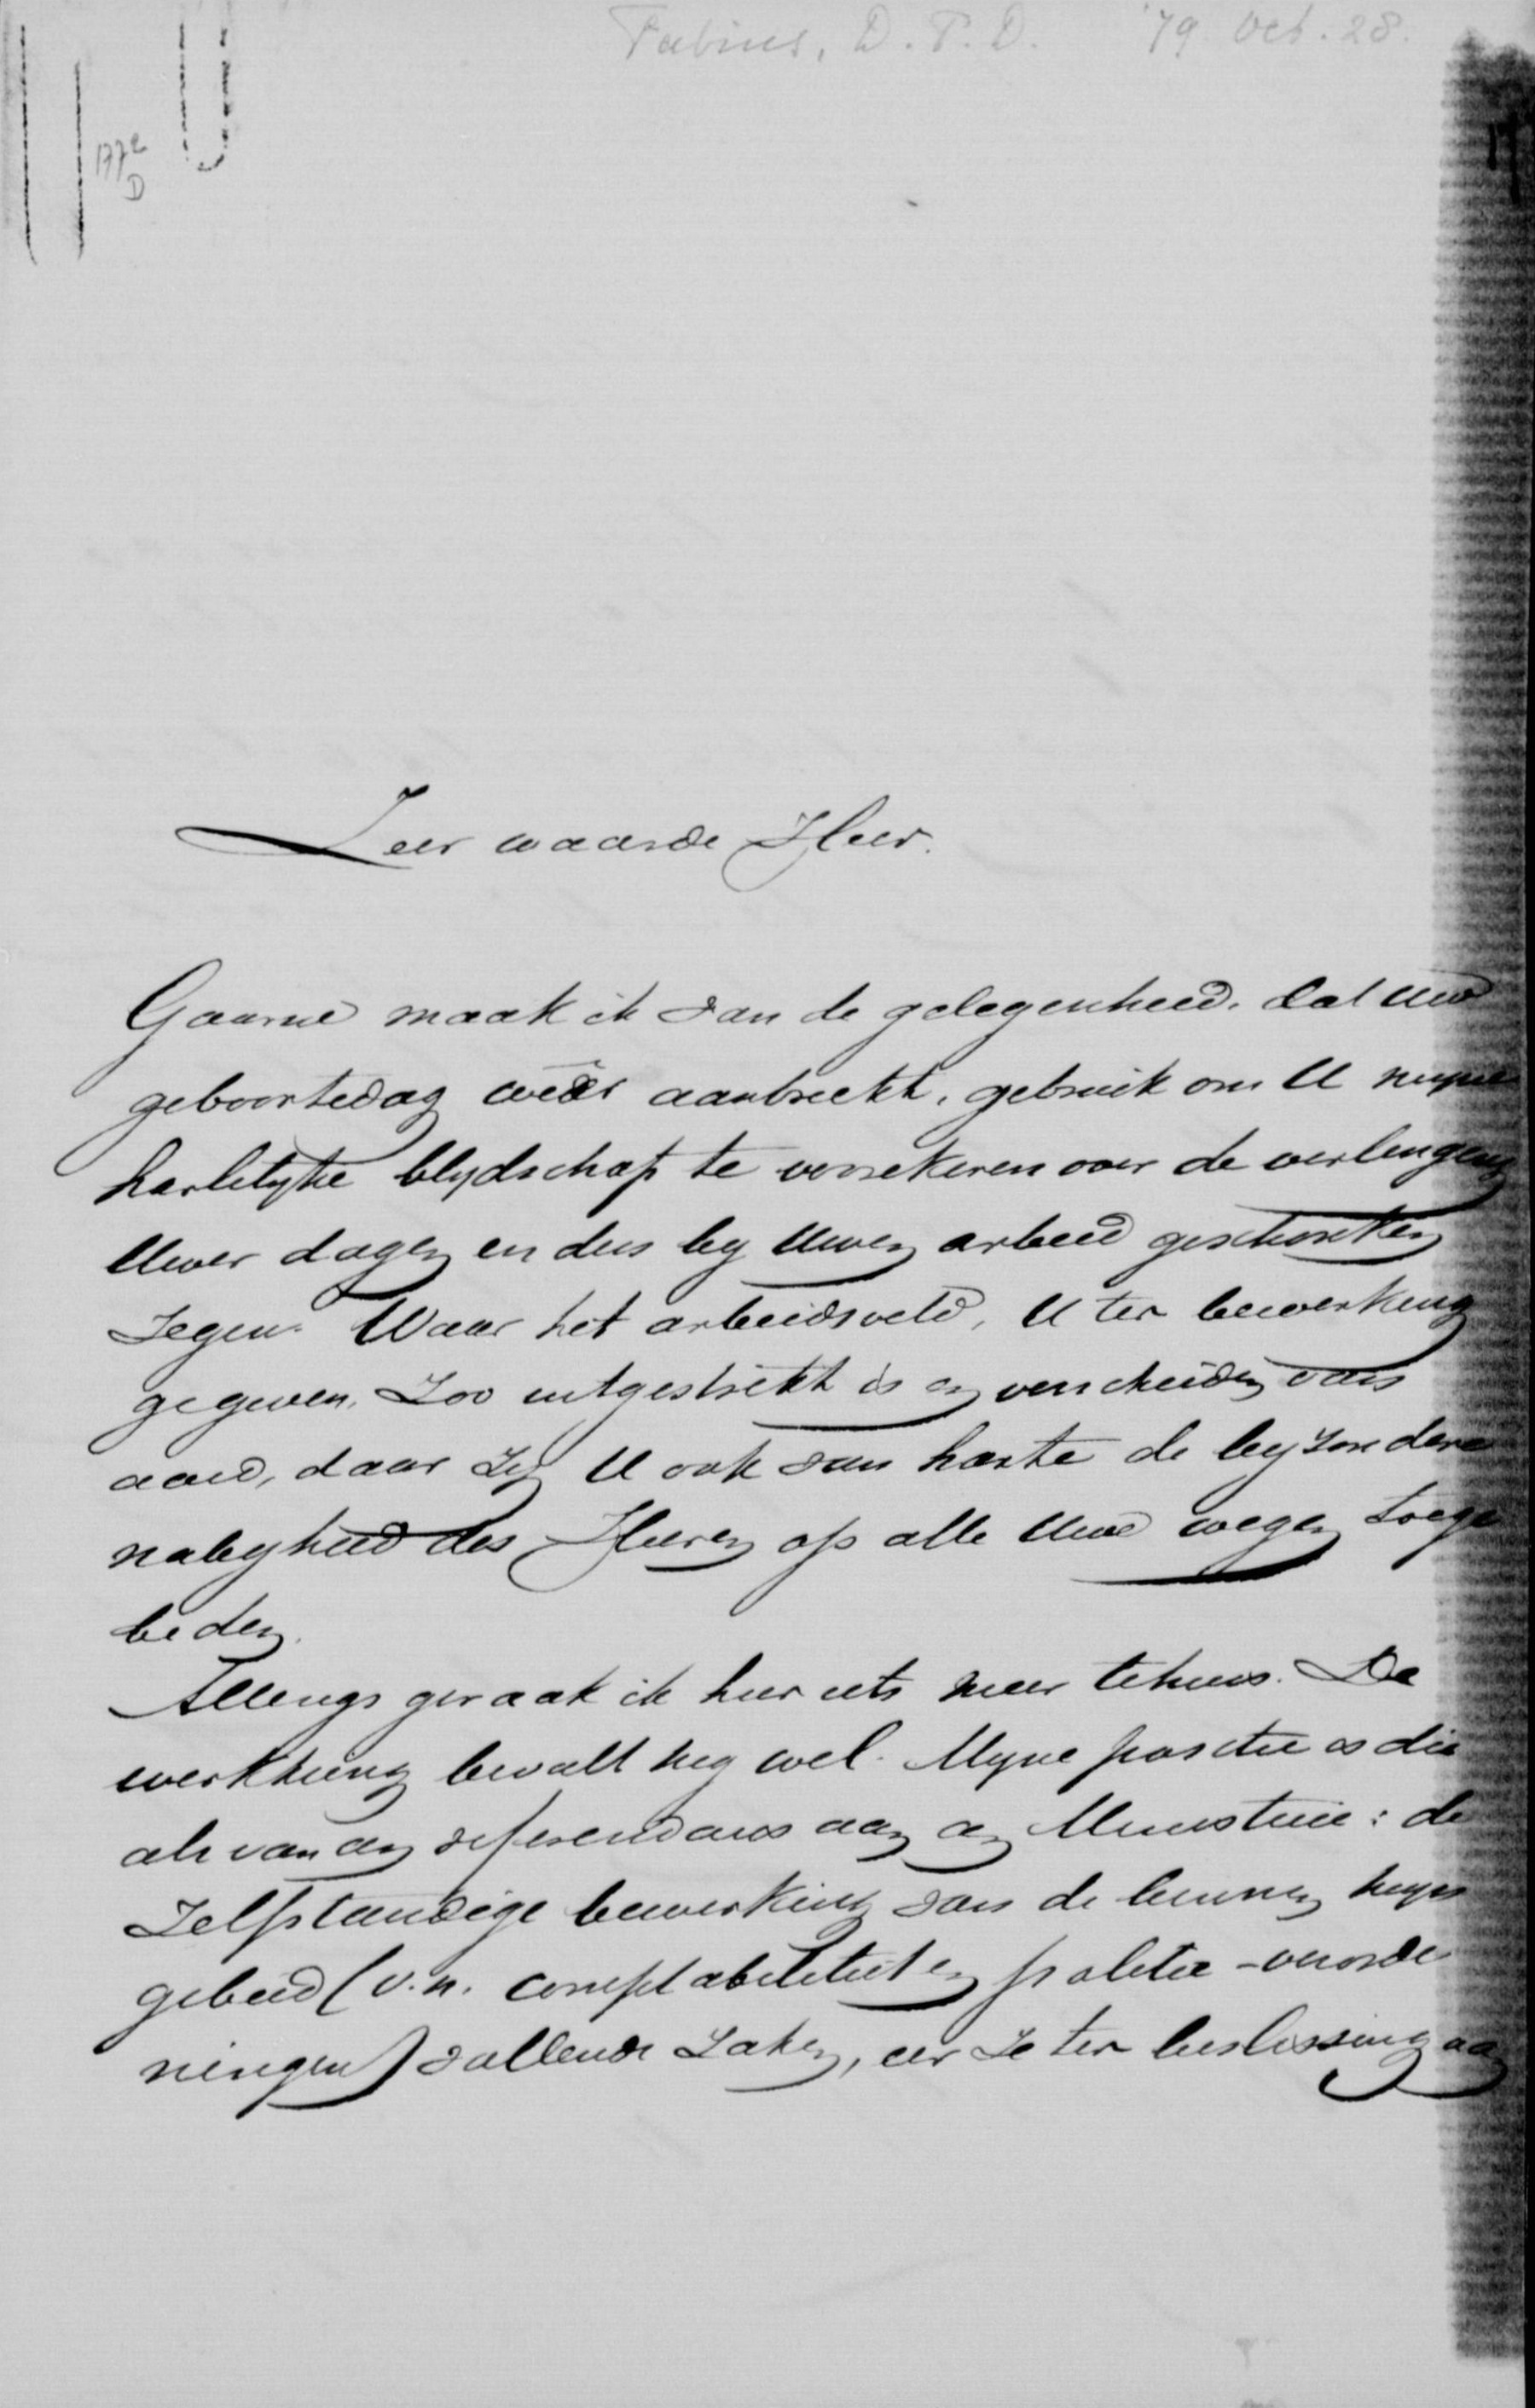 Fabius, D. P. D. '79 Oct. 28.
177e
D
Zeer waarde Heer.
Gaarne maak ik van de gelegenheid, dat Uw
geboortedag wêer aanbreekt, gebruik om U mijne
hartelijke blijdschap te verzekeren over de verlenging
Uwer dagen en den bij Uwen arbeid geschonken
zegen. Waar het arbeidsveld, U ter bewerking
gegeven, zoo uitgestrekt is en verscheiden van
aard, daar zij U ook van harte de bijzondere
nabijheid des Heeren op alle Uwe wegen toege
beden.
Allengs geraak ik hier iets meer tehuis. De
werkkring bevalt mij wel. Mijne positie is die
als van een referendaris aan een Ministerie: de
zelfstandige bewerking van de binnen mijn
gebied (v.n. comptabiliteit en politie-verorde
ningen) vallende zaken, eer ze ter beslissing aan